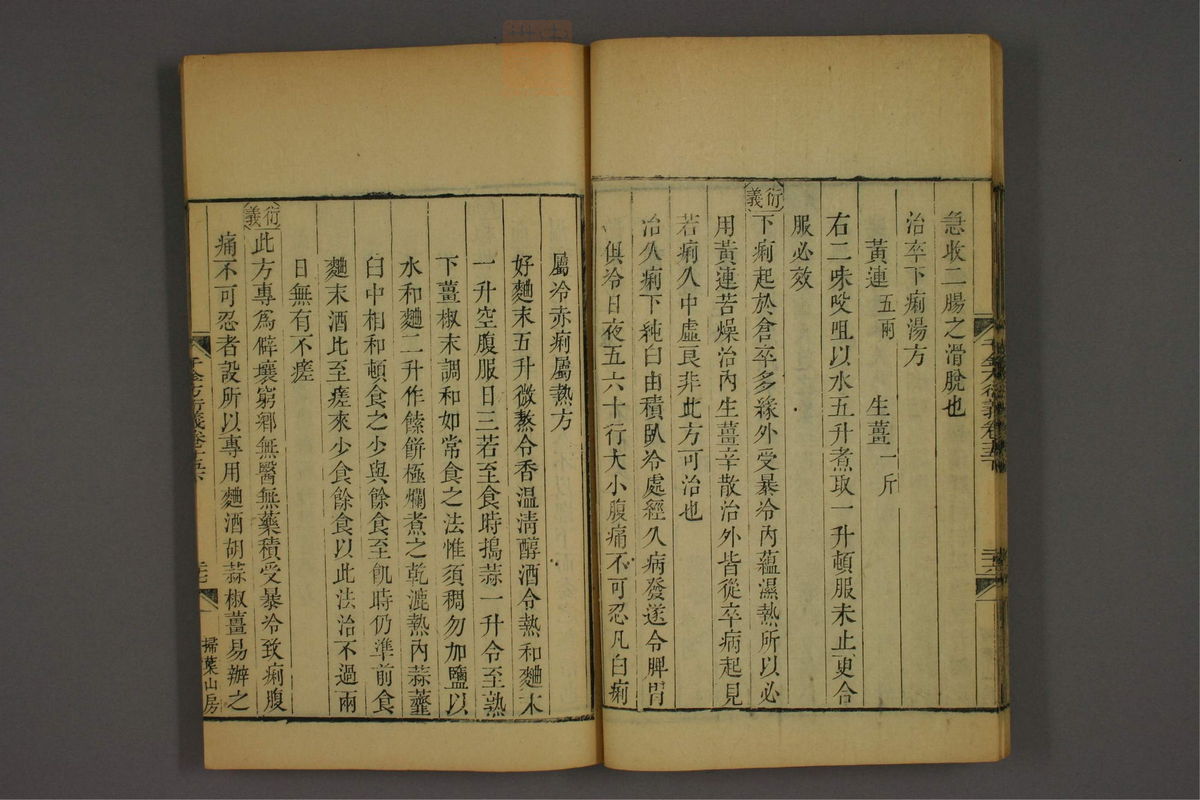 急收二腸之滑脫也
治卒下痢湯方
黃連五兩　生薑一斤
右二味㕮咀以水五升煮取一升頓服未止更合
服必效
衍義下痢起於倉卒多緣外受暴冷內蘊濕熱所以必
用黃連苦燥治內生薑辛散治外皆從卒病起見
若痢久中虛良非此方可治也
治久痢下純白由積臥冷處經久病發遂令脾胃
俱冷日夜五六十行大小腹痛不可忍凡白痢
屬冷赤痢屬熱方
好麯末五升微熬令香溫清醇酒令熱和麯末
一升空腹服日三若至食時搗蒜一升令至熟
下薑椒末調和如常食之法惟須稠勿加鹽以
水和麯二升作餢餅極爛煮之乾漉熱內蒜虀
臼中相和頓食之少與餘食至飢時仍準前食
麯末酒比至瘥來少食餘食以此法治不過兩
日無有不瘥
衍義此方專為僻壤窮鄉無醫無藥積受暴冷致痢腹
痛不可忍者設所以專用麯酒胡蒜椒薑易辦之
千金方衍義卷十五下
掃葉山房